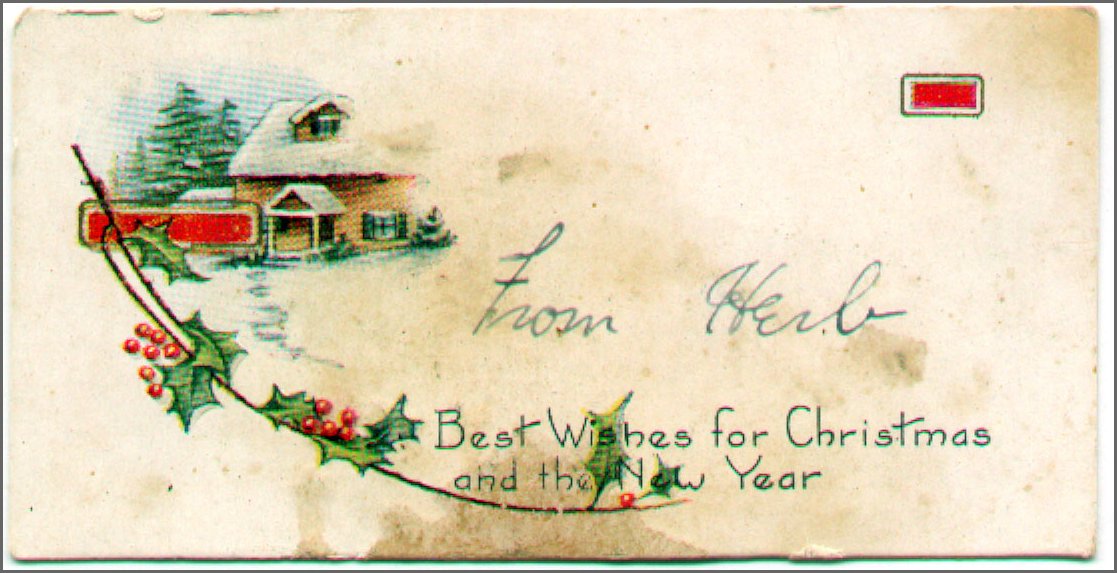 From Herb
Best Wishes for Christmas
and the New Year